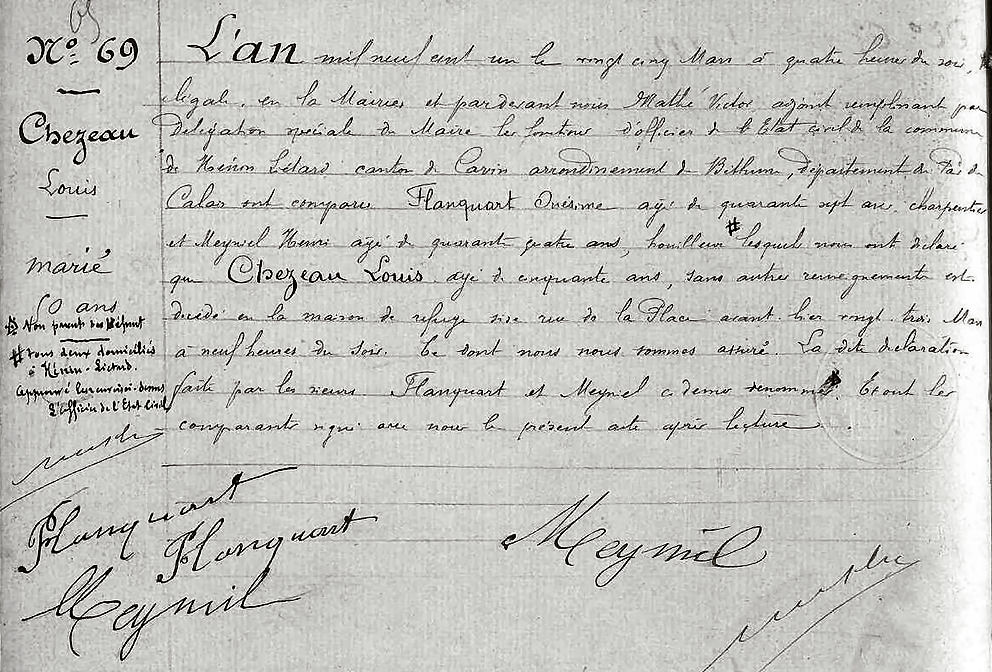 69
Nº 69
Chezeau
Louis
marié
50 ans
Non parents du défunt
# tous deux domiciliés
à Hénin-Liétard.
Approuvé les renvois ci-dessus
L'officier de l'Etat Civil
L'an mil neuf cent un le vingt cinq Mars à quatre heures du soir,
légale, en la Mairie et par devant nous Mathé Victor adjoint remplissant par
délégation spéciale du Maire les fonctions d'officier de l'Etat civil de la commune
de Hénin Liétard canton de Carvin arrondissement de Béthune, département du Pas de
Calais ont comparu Flanquart Onésime âgé de quarante sept ans, charpentier
et Meyniel Henri âgé de quarante quatre ans, houilleur # lesquels nous ont déclaré
que Chezeau Louis âgé de cinquante ans, sans autre renseignements est
décédé en la maison de refuge sise rue de la Place avant hier vingt trois Mars
à neuf heures du soir. Ce dont nous nous sommes assuré. La dite déclaration
faite par les sieurs Flanquart et Meyniel ci-dessus dénommés. Et ont les
comparants signé avec nous le présent acte après lecture.
Flanquart
Flanquart
Meyniel
Meyniel